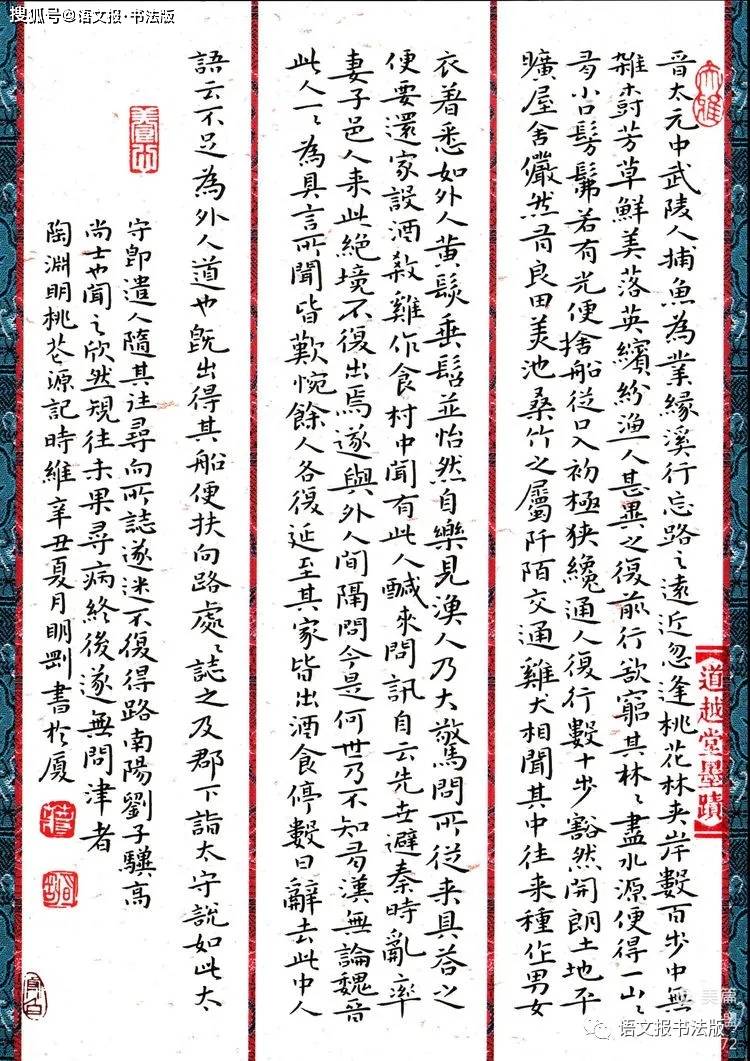 搜狐号@语文报·书法版
大雅
晉太元中武陵人捕魚為業緣溪行忘路之遠近忽逢桃花林夾岸數百步中無
雜樹芳草鮮美落英繽紛漁人甚異之復前行欲窮其林〻盡水源便得一山〻
有小口髣髴若有光便捨船從口入初極狹纔通人復行數十步豁然開朗土地平
曠屋舍儼然有良田美池桑竹之屬阡陌交通雞犬相聞其中往来種作男女
衣著悉如外人黃髮垂髫並怡然自樂見漁人乃大驚問所從来具答之
便要還家設酒殺雞作食村中聞有此人鹹來問訊自云先世避秦時亂率
妻子邑人来此絕境不復出焉遂與外人間隔問今是何世乃不知有漢無論魏晉
此人一〻為具言所聞皆歎惋餘人各復延至其家皆出酒食停數日辭去此中人
語云不足為外人道也既出得其船便扶向路處〻誌之及郡下詣太守說如此太
守即遣人隨其往尋向所誌遂迷不復得路南陽劉子驥高
尚士也聞之欣然規往未果尋病終後遂無問津者
陶淵明桃花源記時維辛丑夏月明剛書於廈
道越堂墨蹟
美篇
语文报书法版
72